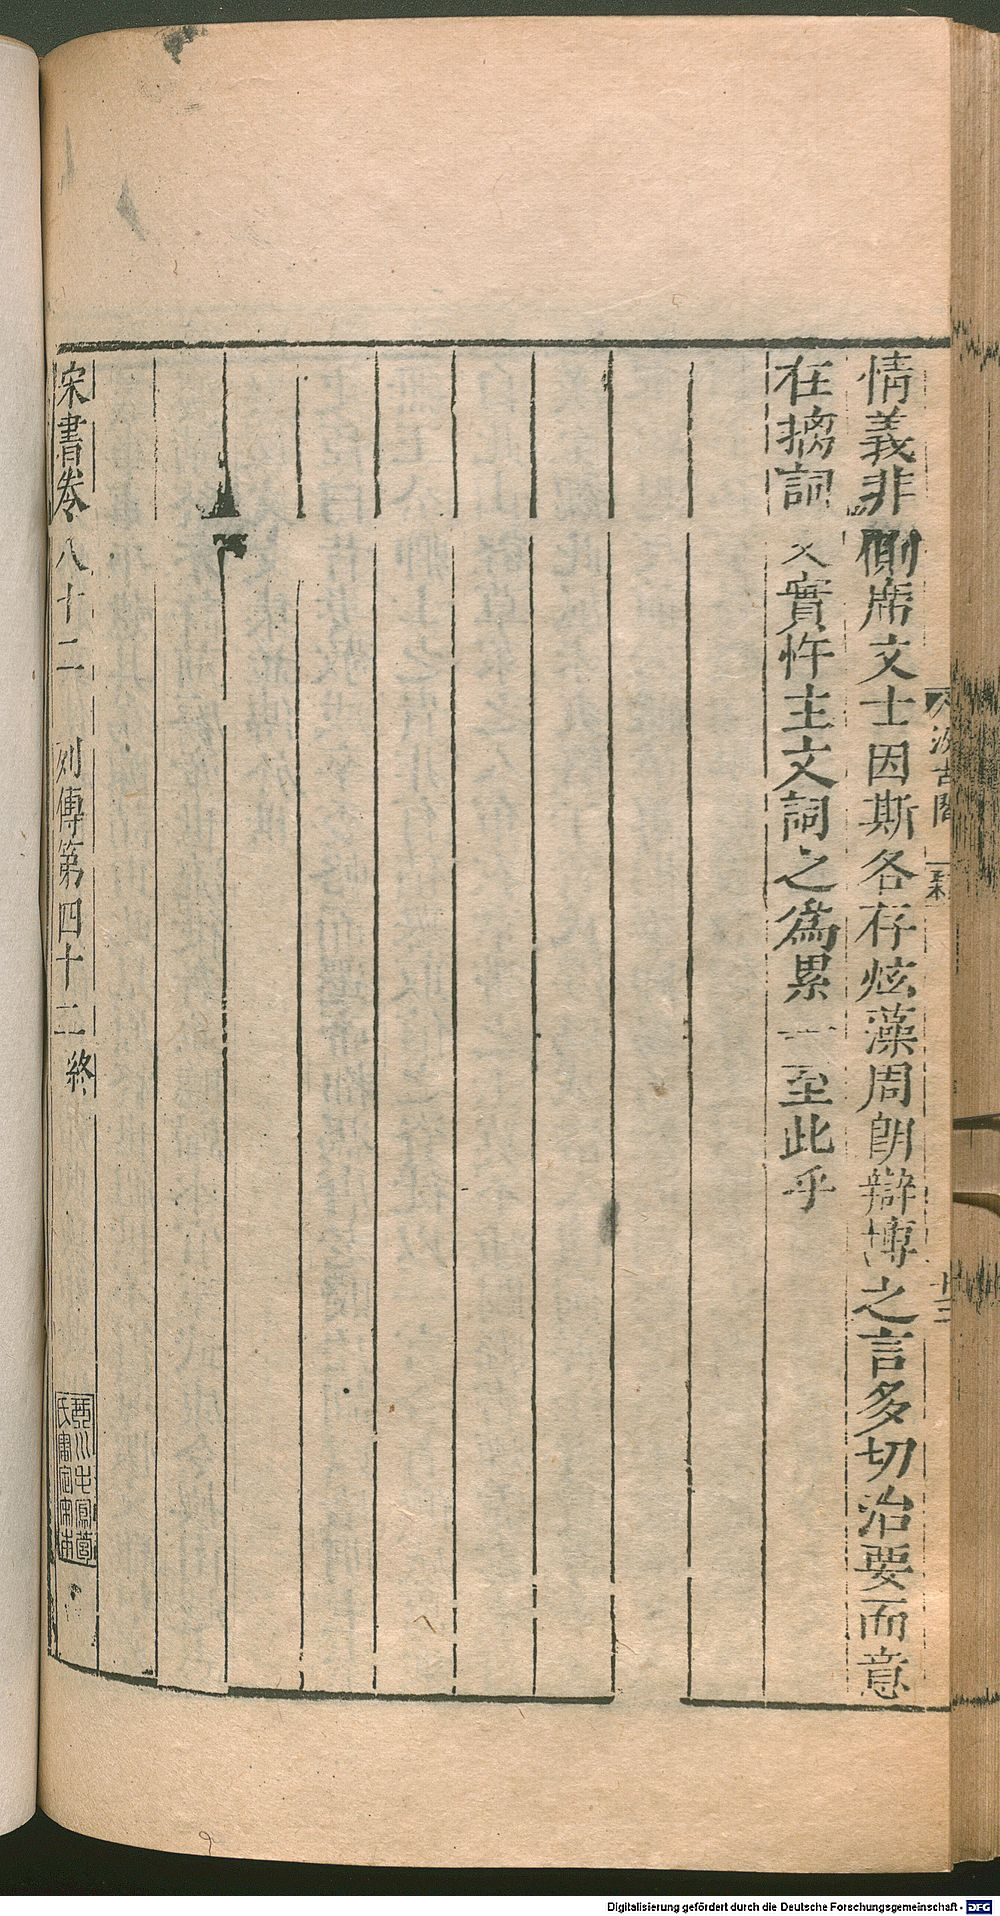 情義非側席文士因斯各存炫藻周朗辯博之言多切治要而意
在摛詞文實忤主文詞之為累一至此乎
宋書卷八十二 列傳第四十二 終
汲古閣
十三
Digitalisierung gefördert durch die Deutsche Forschungsgemeinschaft - DFG